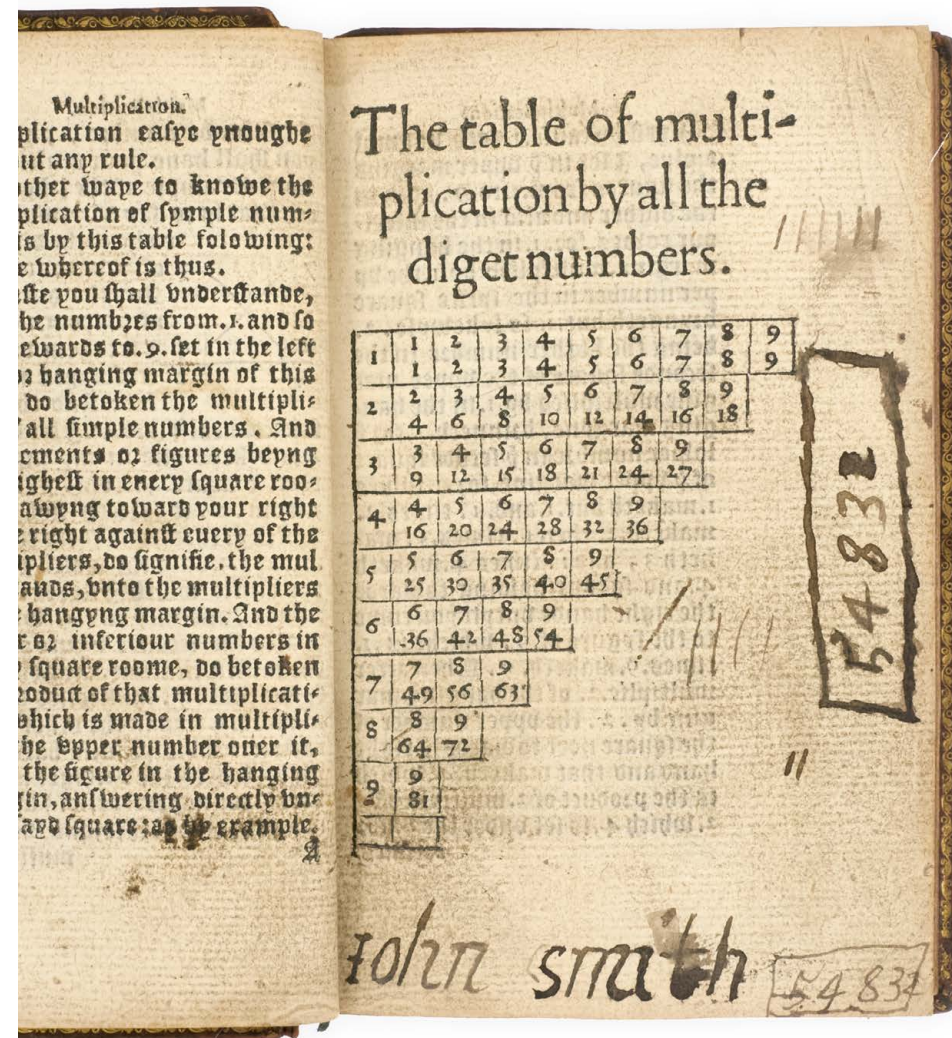 Multiplication.
plication easye ynoughe
ut any rule.
other waye to knowe the
plication of symple num⸗
is by this table folowing:
e whereof is thus.
ste you shall vnderstande,
he numbꝛes from.1.and so
ewards to.9.set in the left
oꝛ hanging margin of this
do betoken the multipli⸗
all simple numbers. And
cments oꝛ figures beyng
ighest in enery square roo⸗
awyng toward your right
right against euery of the
pliers,do signifie.the mul
ands,vnto the multipliers
hangyng margin. And the
r oꝛ inferiour numbers in
square roome, do betoken
roduct of that multiplicati⸗
which is made in multipli⸗
he vpper number oner it,
the figure in the hanging
gin,answering directly vn⸗
sayd square:as by example.
A
The table of multi-
plication by all the
diget numbers.
1 1 2 3 4 5 6 7 8 9
1 2 3 4 5 6 7 8 9
2 2 3 4 5 6 7 8 9
4 6 8 10 12 14 16 18
3 3 4 5 6 7 8 9
9 12 15 18 21 24 27
4 4 5 6 7 8 9
16 20 24 28 32 36
5 5 6 7 8 9
25 30 35 40 45
6 6 7 8 9
36 42 48 54
7 7 8 9
49 56 63
8 8 9
64 72
9 9
81
54832
Iohn smith
54832